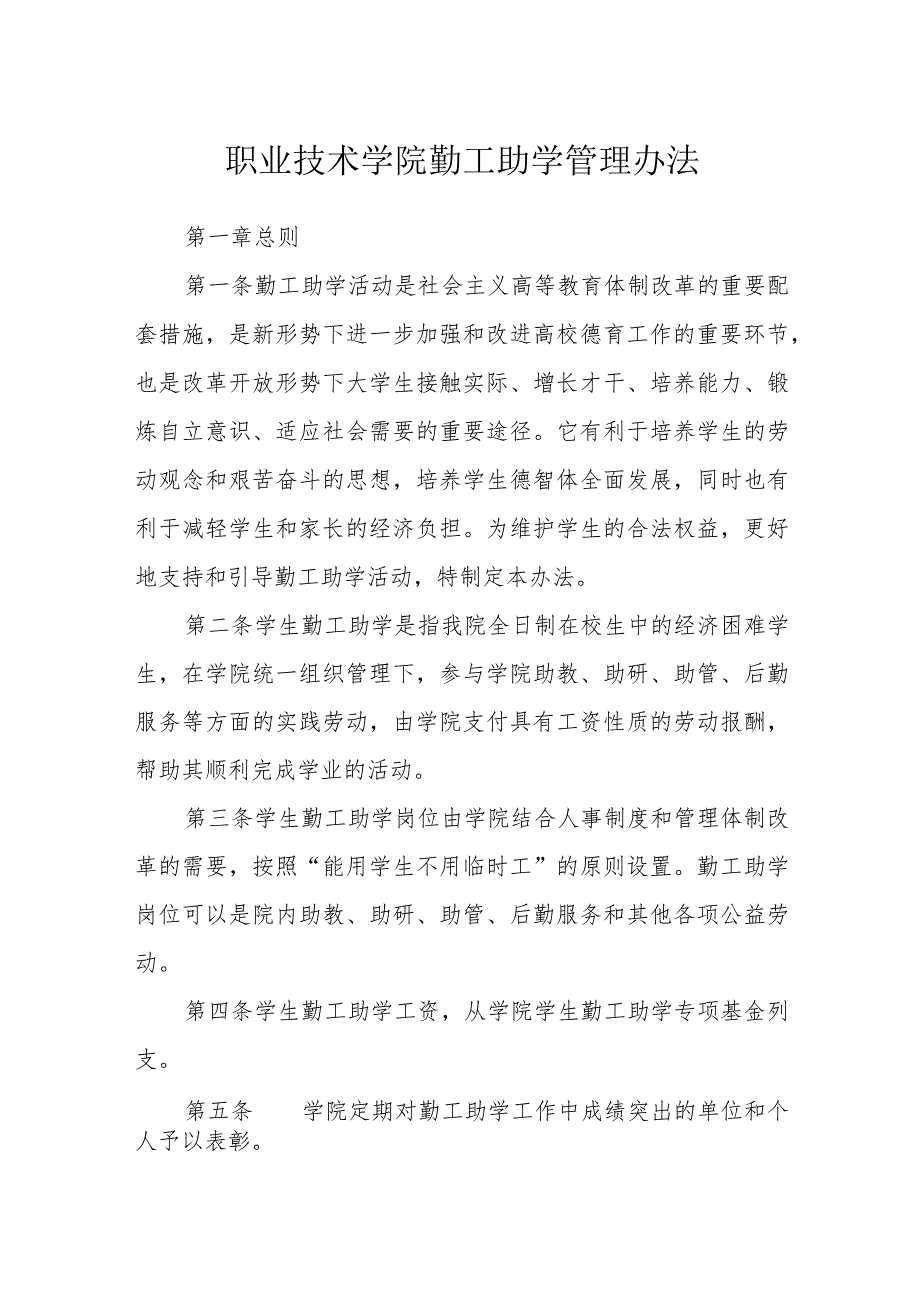 职业技术学院勤工助学管理办法
第一章总则
第一条勤工助学活动是社会主义高等教育体制改革的重要配
套措施，是新形势下进一步加强和改进高校德育工作的重要环节，
也是改革开放形势下大学生接触实际、增长才干、培养能力、锻
炼自立意识、适应社会需要的重要途径。它有利于培养学生的劳
动观念和艰苦奋斗的思想，培养学生德智体全面发展，同时也有
利于减轻学生和家长的经济负担。为维护学生的合法权益，更好
地支持和引导勤工助学活动，特制定本办法。
第二条学生勤工助学是指我院全日制在校生中的经济困难学
生，在学院统一组织管理下，参与学院助教、助研、助管、后勤
服务等方面的实践劳动，由学院支付具有工资性质的劳动报酬，
帮助其顺利完成学业的活动。
第三条学生勤工助学岗位由学院结合人事制度和管理体制改
革的需要，按照“能用学生不用临时工”的原则设置。勤工助学
岗位可以是院内助教、助研、助管、后勤服务和其他各项公益劳
动。
第四条学生勤工助学工资，从学院学生勤工助学专项基金列
支。
第五条 学院定期对勤工助学工作中成绩突出的单位和个
人予以表彰。